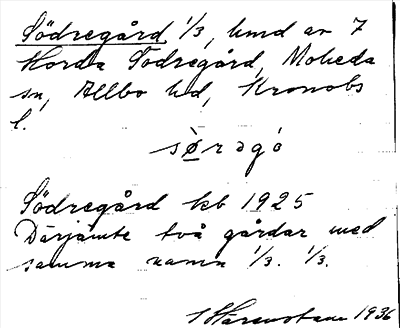 Södregård 1/3, hmd av 7
Horda Södregård, Moheda
sn, Allbo hd, Kronobs
l.
sørəgó
Södregård kb 1925
Därjämte två gårdar med
samma namn 1/3. 1/3.
1936